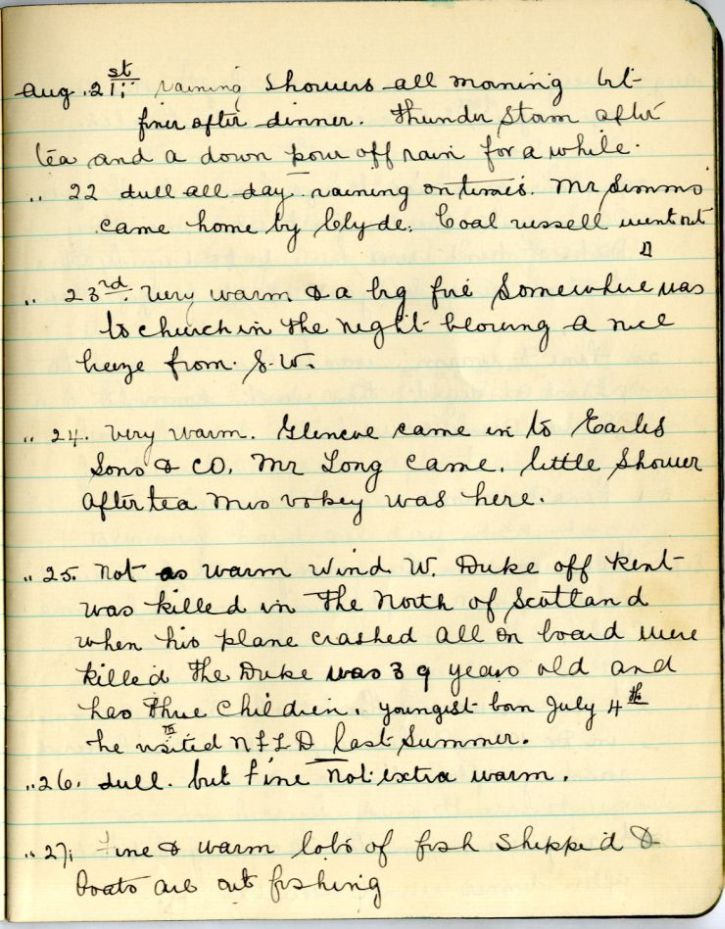 Aug. 21st; raining showers all morning bit
finer after dinner. Thunder Storm after
tea and a down pour off rain for a while.
" 22 dull all day raining on times. Mr Simms
came home by Clyde. Coal vessell went out
" 23rd. Very warm & a big fire Somewhere was
to church in the night blowing a nice
breeze from S.W.
" 24. Very warm. Glencoe came in to Earles
Sons & CO. Mr Long came. little Shower
After tea Mrs Vokey was here.
" 25. Not as warm Wind W. Duke off Kent
was killed in The North of Scotland
when his plane crashed All on board were
killed The Duke was 39 years old and
has Three Children. youngest born July 4th
he visited NFLD last Summer.
" 26. dull. but Fine Not extra warm.
" 27; Fine & warm lots of fish Shipped &
boats are out fishing